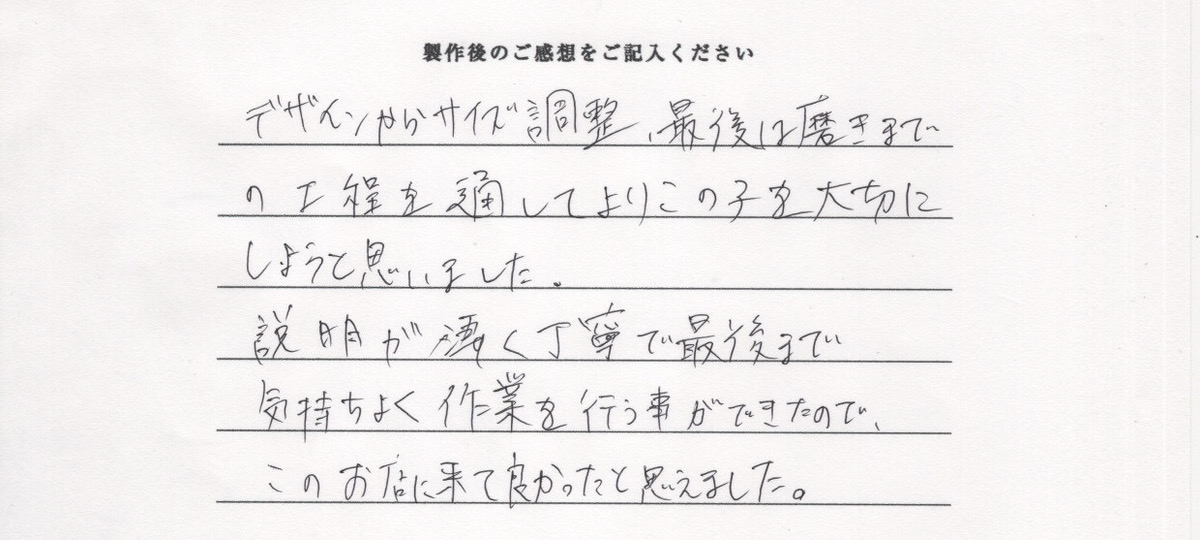 製作後のご感想をご記入ください
デザインからサイズ調整、最後は磨きまで
の工程を通してよりこの子を大切に
しようと思いました。
説明が凄く丁寧で最後まで
気持ちよく作業を行う事ができたので、
このお店に来て良かったと思えました。